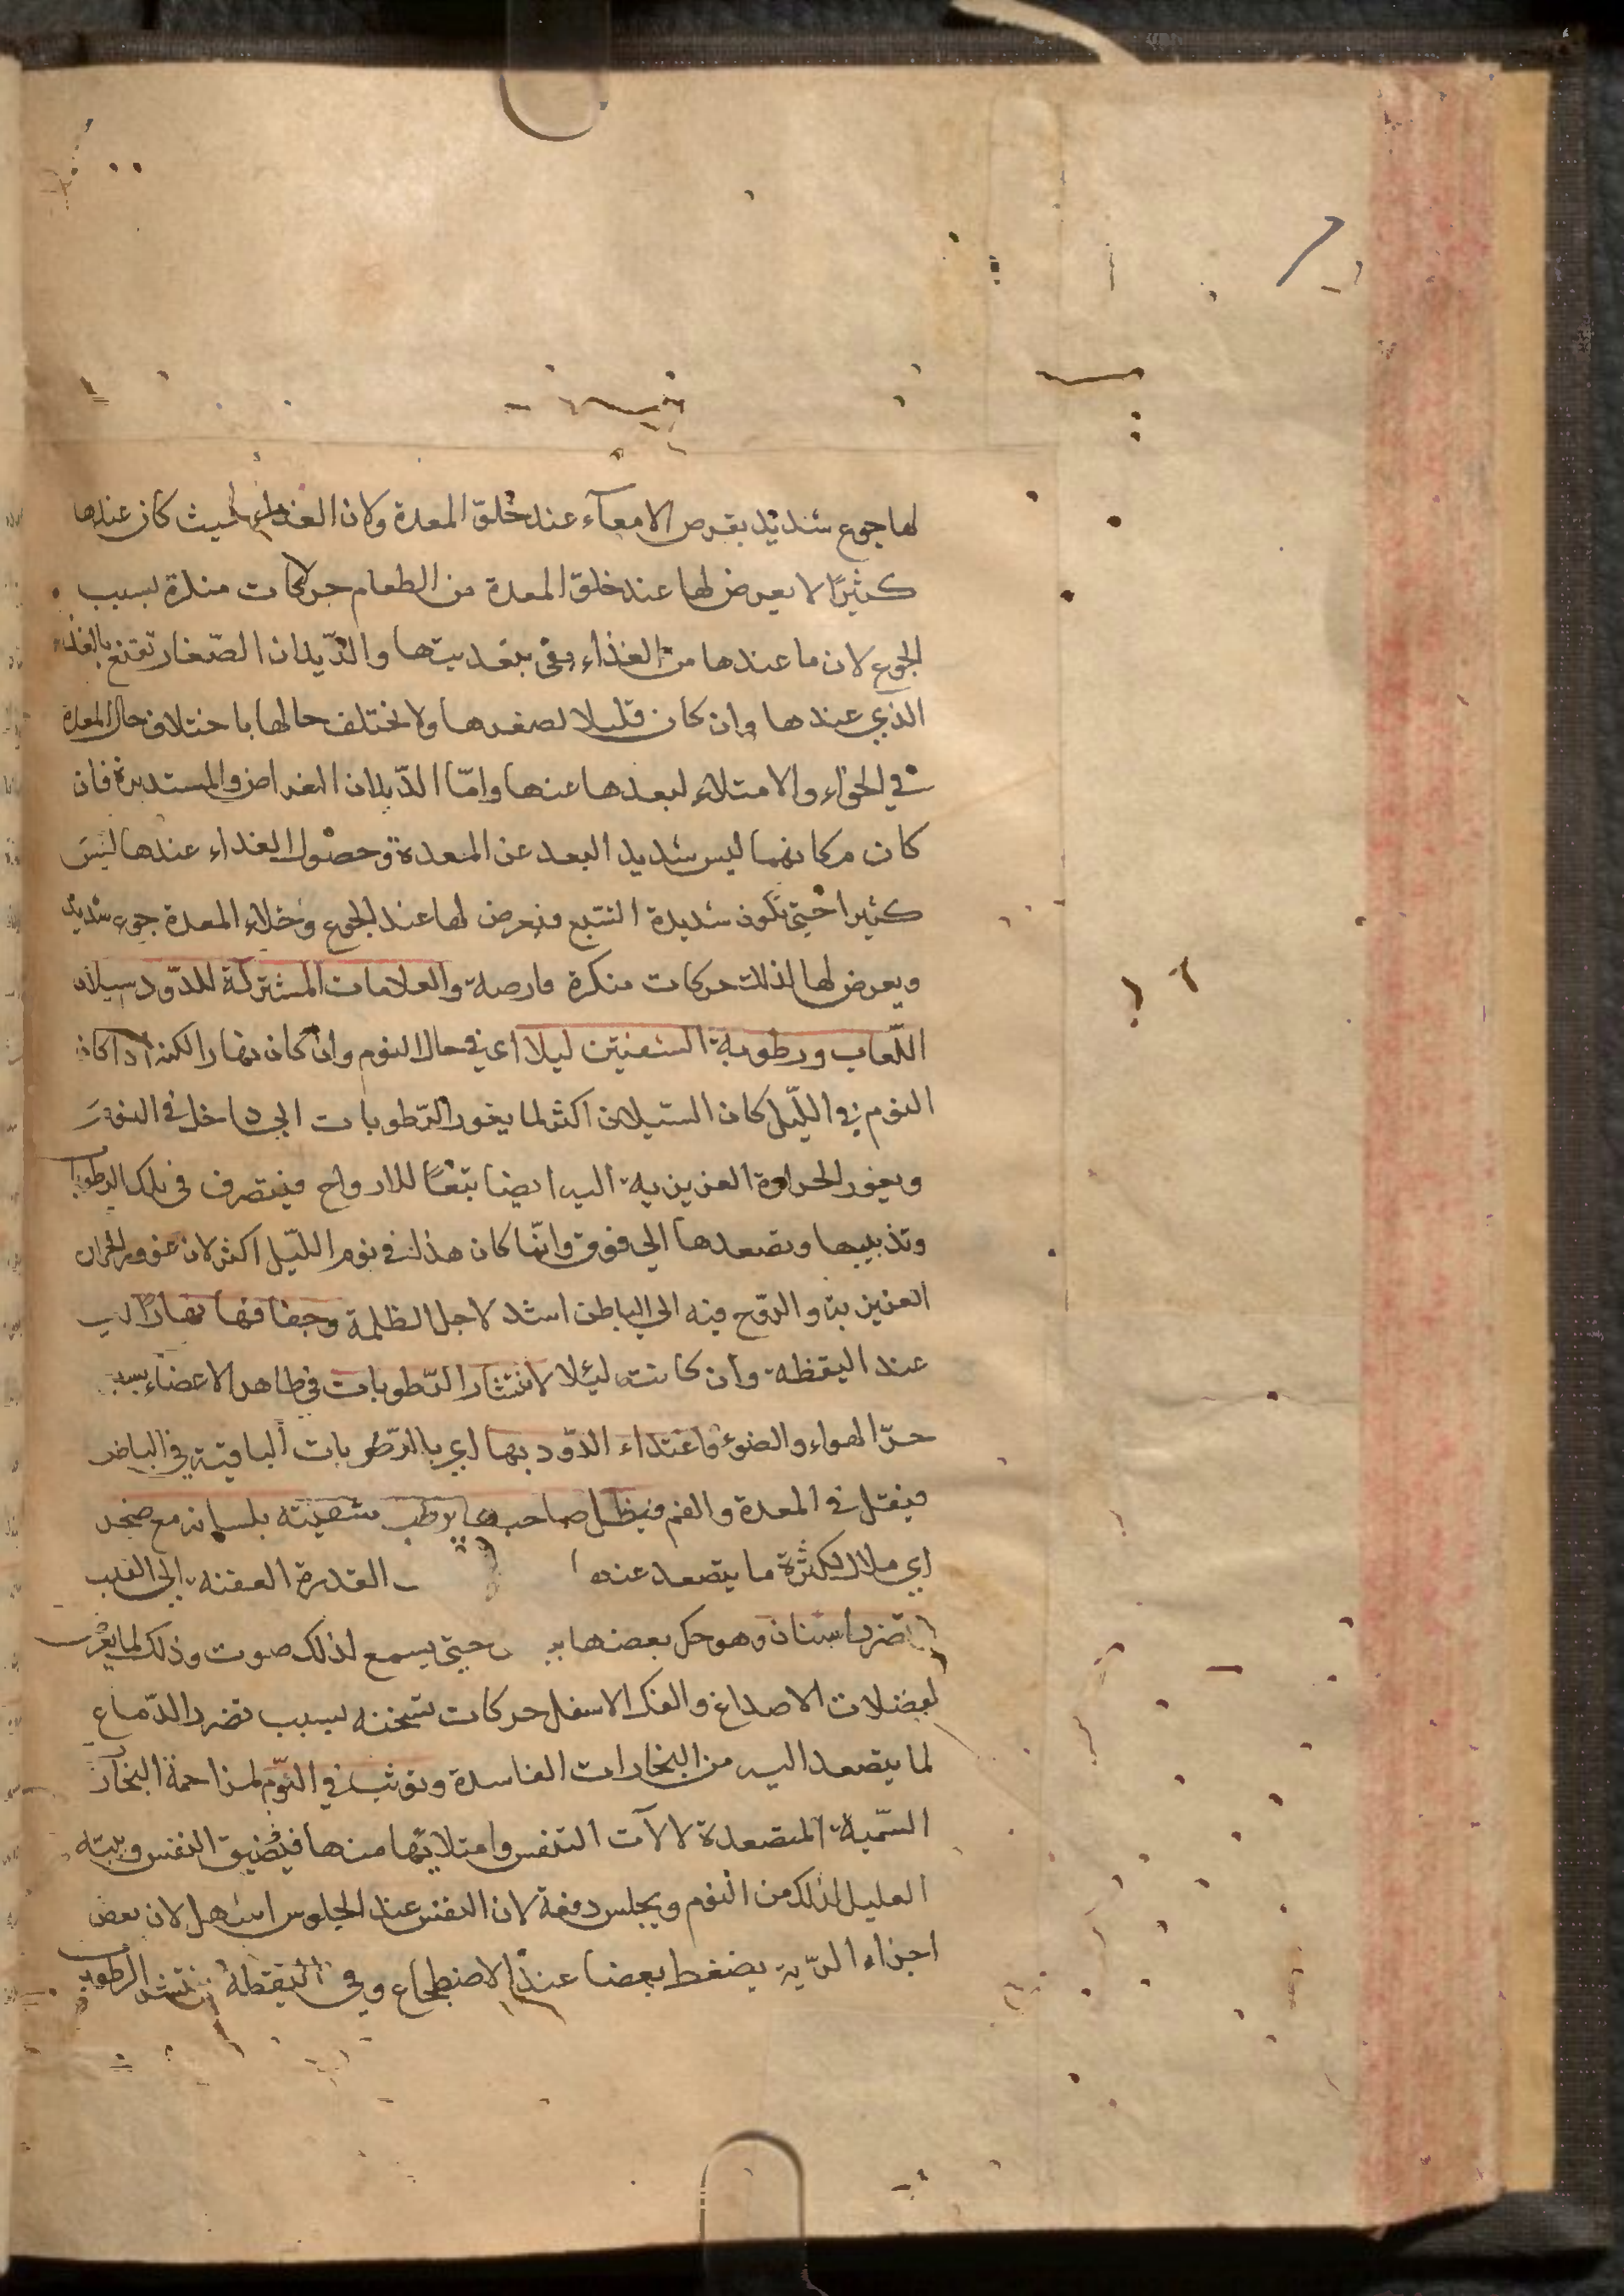 لها جوع شديد بقرص الامعآء عند خلق المعدة ولان الغذاء لميث كان عندها
كثيرًا لا يعرض لها عند خلق المعدة من الطعام حركات منكرة بسبب
الجوع لان ما عندها من الغذاء يفى بتغديتها والدّيدان الصّغار تقنع بالغذاء
الذي عندها وان كان قليلا لصغرها ولا يختلف حالها باختلاف حال المعدة
في الخواء والامتلاء لبعدها عنها وامّا الدّيدان العراض والمستديرة فان
كان مكانهما ليس شديد البعد عن المعدة وحصول الغذاء عندها ليس
كثيرا حتى تكون شديدة الشبع فيعرض لها عند الجوع وخلاء المعدة جوع شديد
ويعرض لها لذلك حركات منكرة قارصة والعلامات المشتركة للدّود سيلان
اللّعاب ورطوبة الشفتين ليلا اى في حال النوم وان كان نهارا لكنه اذا كان
النوم في اللّيل كان السّيلان اكثر لما يغور الرّطوبات الى داخل في النوم
ويغور الحرارة الغريزية اليه ايضا تبعًا للارواح فيتصرف في تلك الرطوبات
وتذيبها وتصعدها الى فوق وانّما كان هذا في نوم اللّيل اكثر لان غوور الحرارة
الغريزية والروح فيه الى الباطن اشد لاجل الظلمة وجفافها نهارًا اى
عند اليقظة وان كانت ليلا لانتشار الرّطوبات في ظاهر الاعضاء بسبب
حرّ الهواء والضوء واغتداء الدّود بها اى بالرّطوبات الباقية في الباطن
فيقل في المعدة والفم فيظل صاحبها يرطب شفيته بلسانه مع ضجر
اى ملال لكثرة ما يتصعد عنده القدرة العفنه الى القلب
تضر اسنان وهو حك بعضها حتى يسمع لذلك صوت وذلك لما يعرض
لعضلات الاصداغ والفك الاسفل حركات تشنجيه بسبب تضرر الدّماغ
لما يتصعد اليه من البخارات الفاسدة وتوثب في النّوم لمزاحمة البخار
السّمية المتصعدة لالآت التنفس وامتلائها منها فيضيق النفس وينتبه
العليل لذلك من النوم ويجلس دفعة لان النفس عند الجلوس اسهل لان بعض
اجزاء الرّية يضغط بعضا عند الاضطجاع وفي اليقظة تنتشر الرطوبة